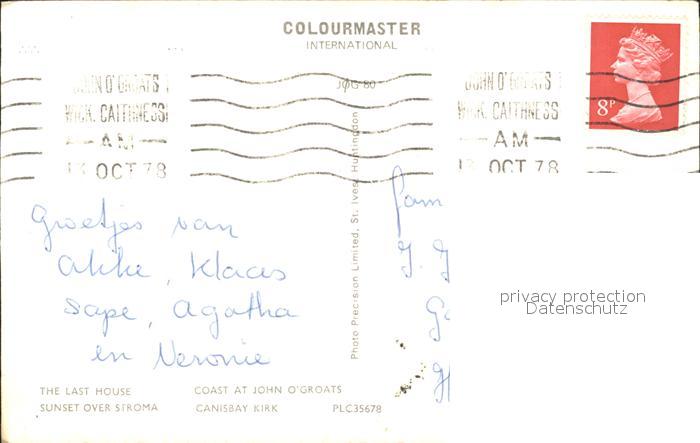 COLOURMASTER
INTERNATIONAL
JOHN O'GROATS
WICK. CAITHNESS
AM
13 OCT 78
JOG 80
JOHN O'GROATS
WICK. CAITHNESS
AM
13 OCT 78
8P
Groetjes van
Akke, Klaas
Sape, Agatha
en Neronie
Photo Precision Limited, St. Ives, Huntingdon
fam
J. J
privacy protection
Datenschutz
THE LAST HOUSE
COAST AT JOHN O'GROATS
SUNSET OVER STROMA
CANISBAY KIRK
PLC35678